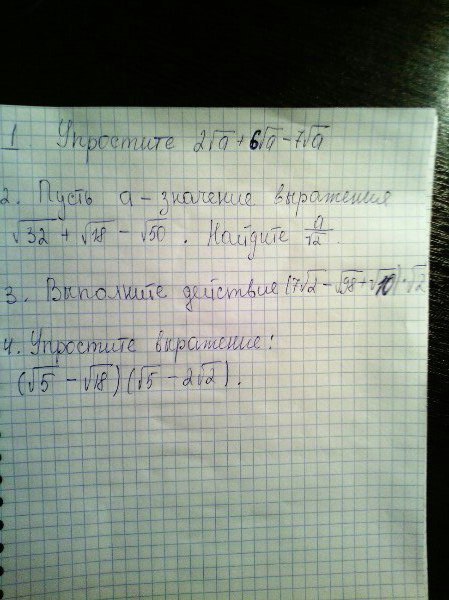 1 Упростите 2√a + 6√a - 7√a
2. Пусть a - значение выражения
√32 + √18 - √50 . Найдите a/√2 .
3. Выполните действие (7√2 - √98 + √10)·√2
4. Упростите выражение:
(√5 - √18)(√5 - 2√2).